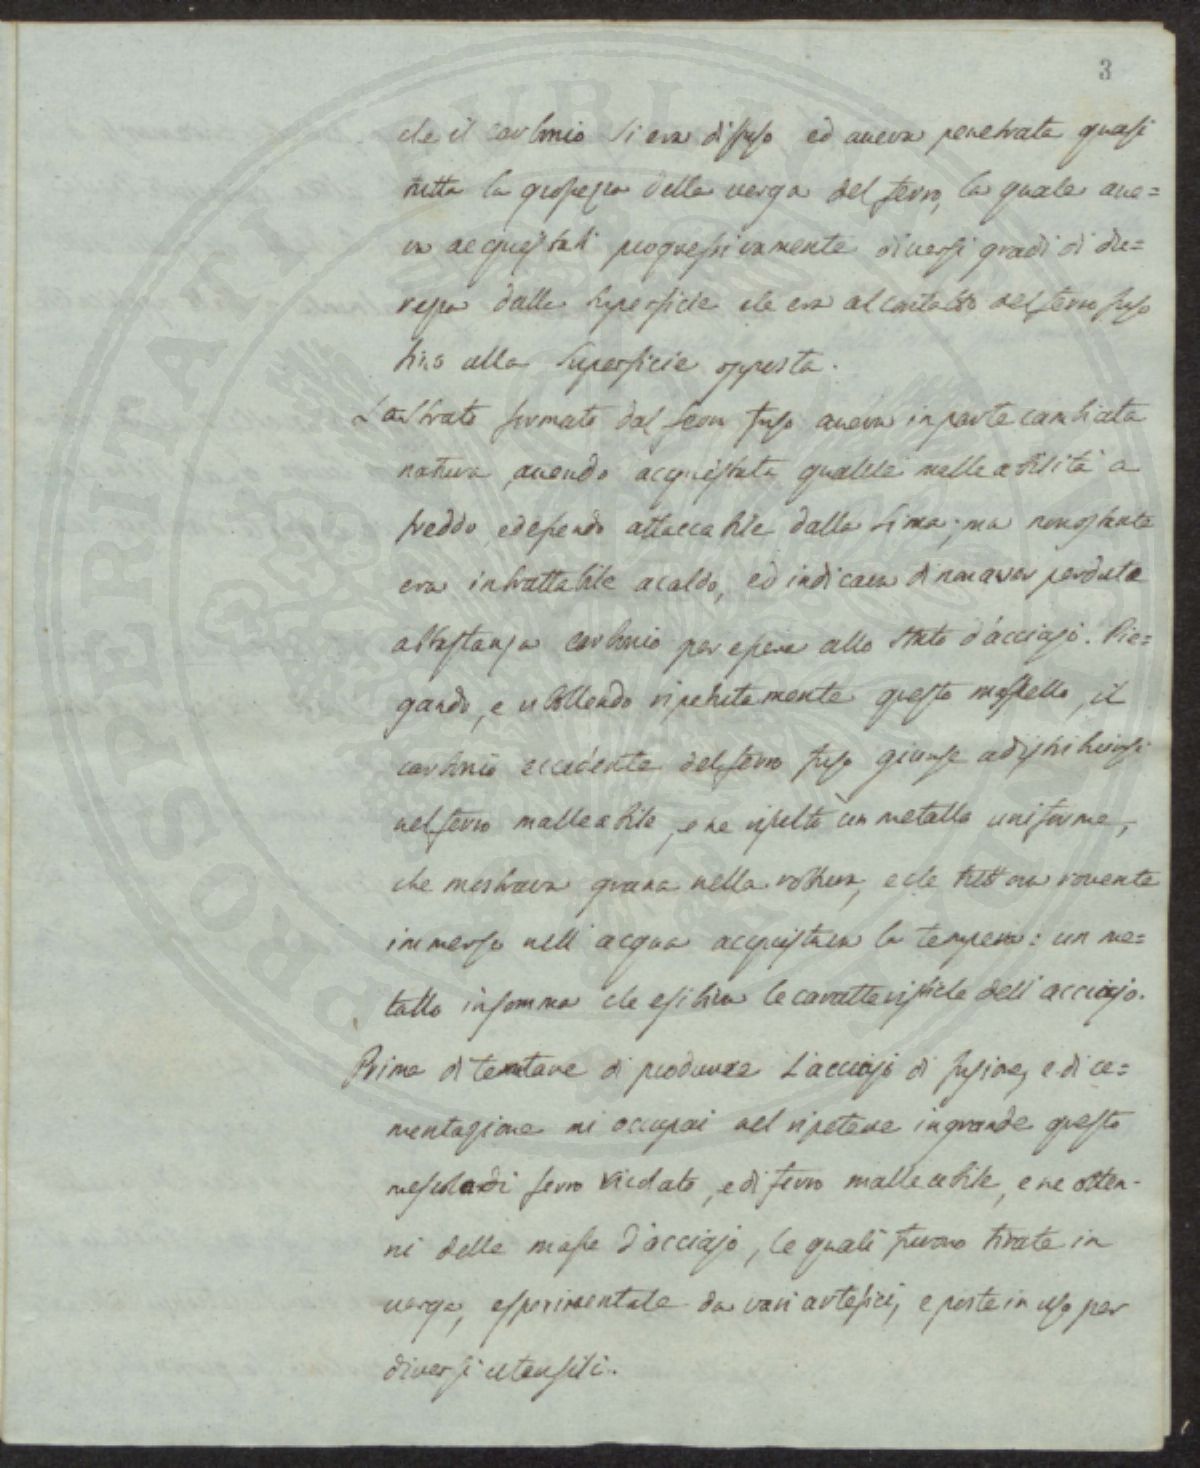 3
che il carbonio si era diffuso ed aveva penetrata quasi
tutta la grossezza della verga del ferro, la quale ave=
va acquistati progressivamente diversi gradi di du=
rezza dalla superficie che era al contatto del ferro fuso
fino alla superficie opposta.
Lo strato formato dal ferro fuso aveva in parte cambiata
natura avendo acquistata qualche malleabilità a
freddo, ed essendo attaccabile dalla lima; ma nonostante
era intrattabile a caldo, ed indicava di non aver perduto
abbastanza carbonio per essere allo stato d'acciajo. Pie=
gando, e ribollendo ripetutamente questo massello, il
carbonio eccedente del ferro fuso giunse a distribuirsi
nel ferro malleabile, e ne risultò un metallo uniforme,
che mostrava grana nella rottura, e che rovente
immerso nell'acqua acquistava la tempera: un me=
tallo insomma che esibiva le caratteristiche dell'acciajo.
Prima di tentare di produrre l'acciajo di fusione, e di ce=
mentazione mi occupai nel ripetere in grande questo
mescolare di ferro ricolato, e di ferro malleabile, e ne otten-
ni delle masse d'acciajo, le quali furono tirate in
verga, esperimentate da vari artefici, e poste in uso per
diversi utensili.
PROSPERITATI PUBLICAE